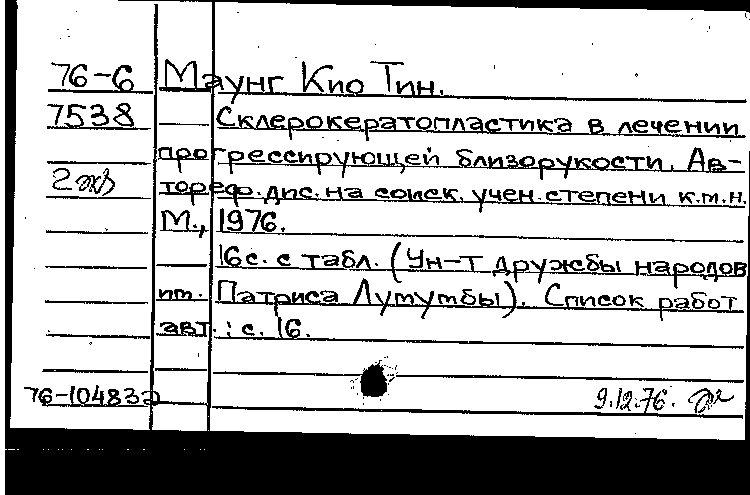 76-6 Маунг Кио Тин.
7538 Склерокератопластика в лечении
прогрессирующей близорукости. Ав-
2 экз тореф. дис. на соиск. учен. степени к.м.н.
М., 1976.
16 с. с табл. (Ун-т дружбы народов
им. Патриса Лумумбы). Список работ
авт.: с. 16.
76-104832
9.12.76.